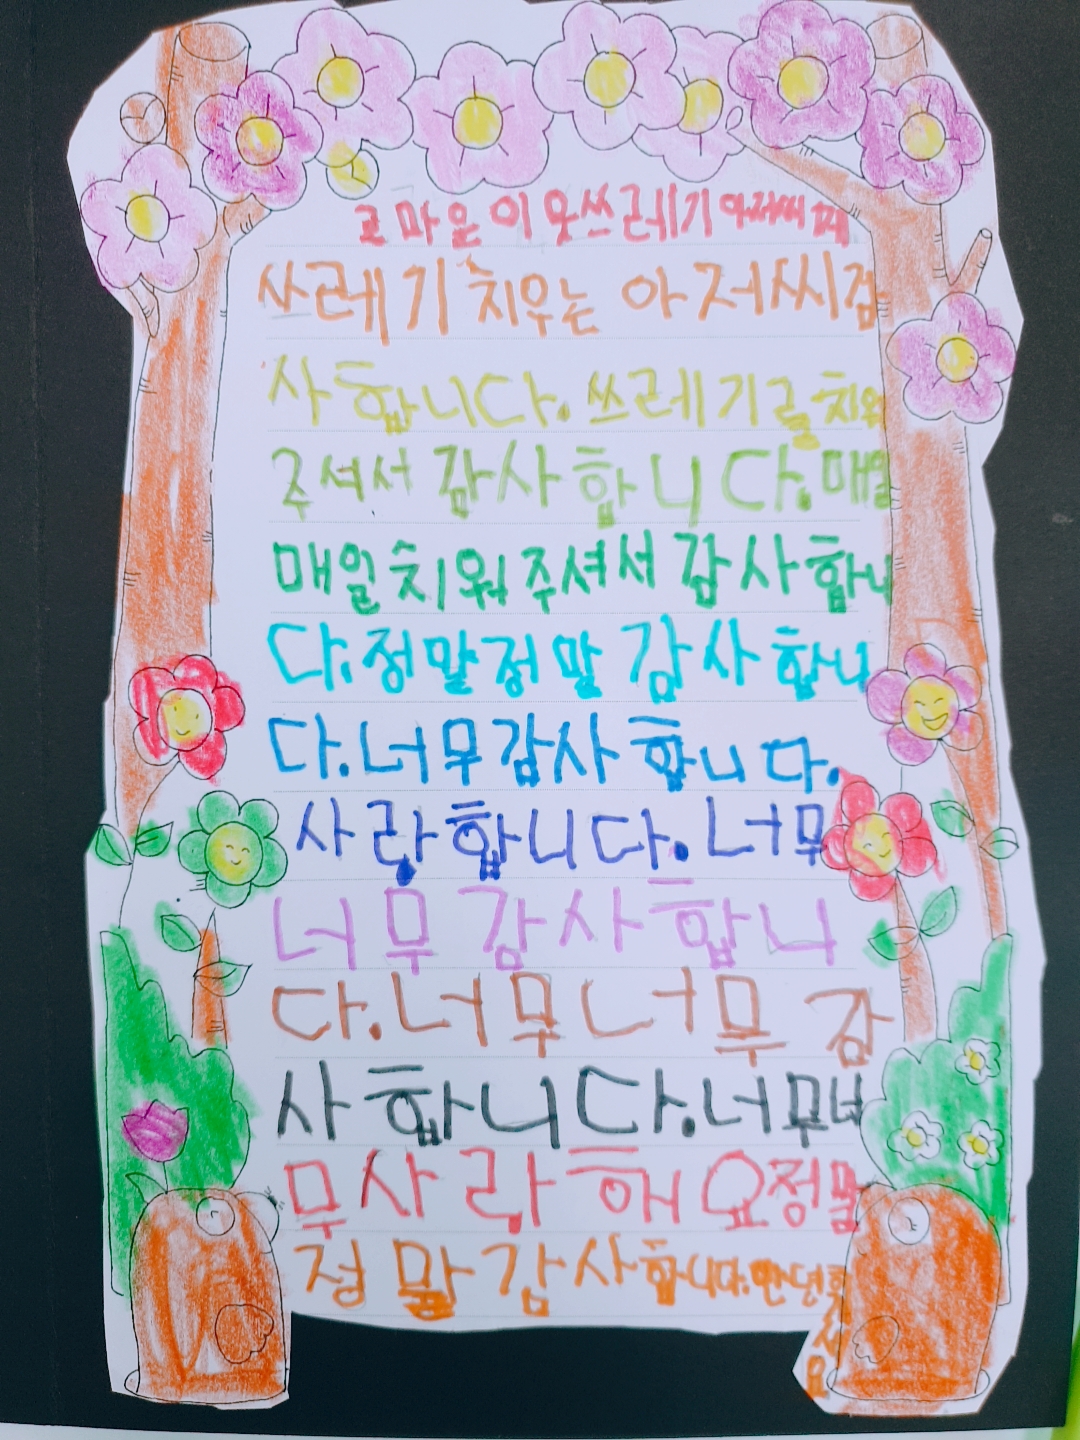 고마운 이웃쓰레기 아저씨께
쓰레기 치우는 아저씨 감
사합니다. 쓰레기를 치워
주셔서 감사합니다. 매일
매일 치워 주셔서 감사합니
다. 정말정말 감사합니
다. 너무감사합니다.
사랑합니다. 너무
너무 감사합니
다. 너무너무 감
사합니다. 너무너
무사랑해요 정말
정말감사합니다.